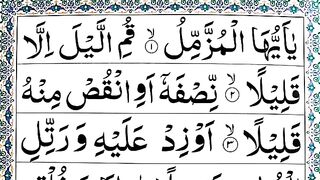 يٰۤاَيُّهَا الْمُزَّمِّلُ ۙ﴿۱﴾ قُمِ الَّيْلَ اِلَّا
قَلِيْلًا ۙ﴿۲﴾ نِّصْفَهٗۤ اَوِ انْقُصْ مِنْهُ
قَلِيْلًا ۙ﴿۳﴾ اَوْ زِدْ عَلَيْهِ وَ رَتِّلِ